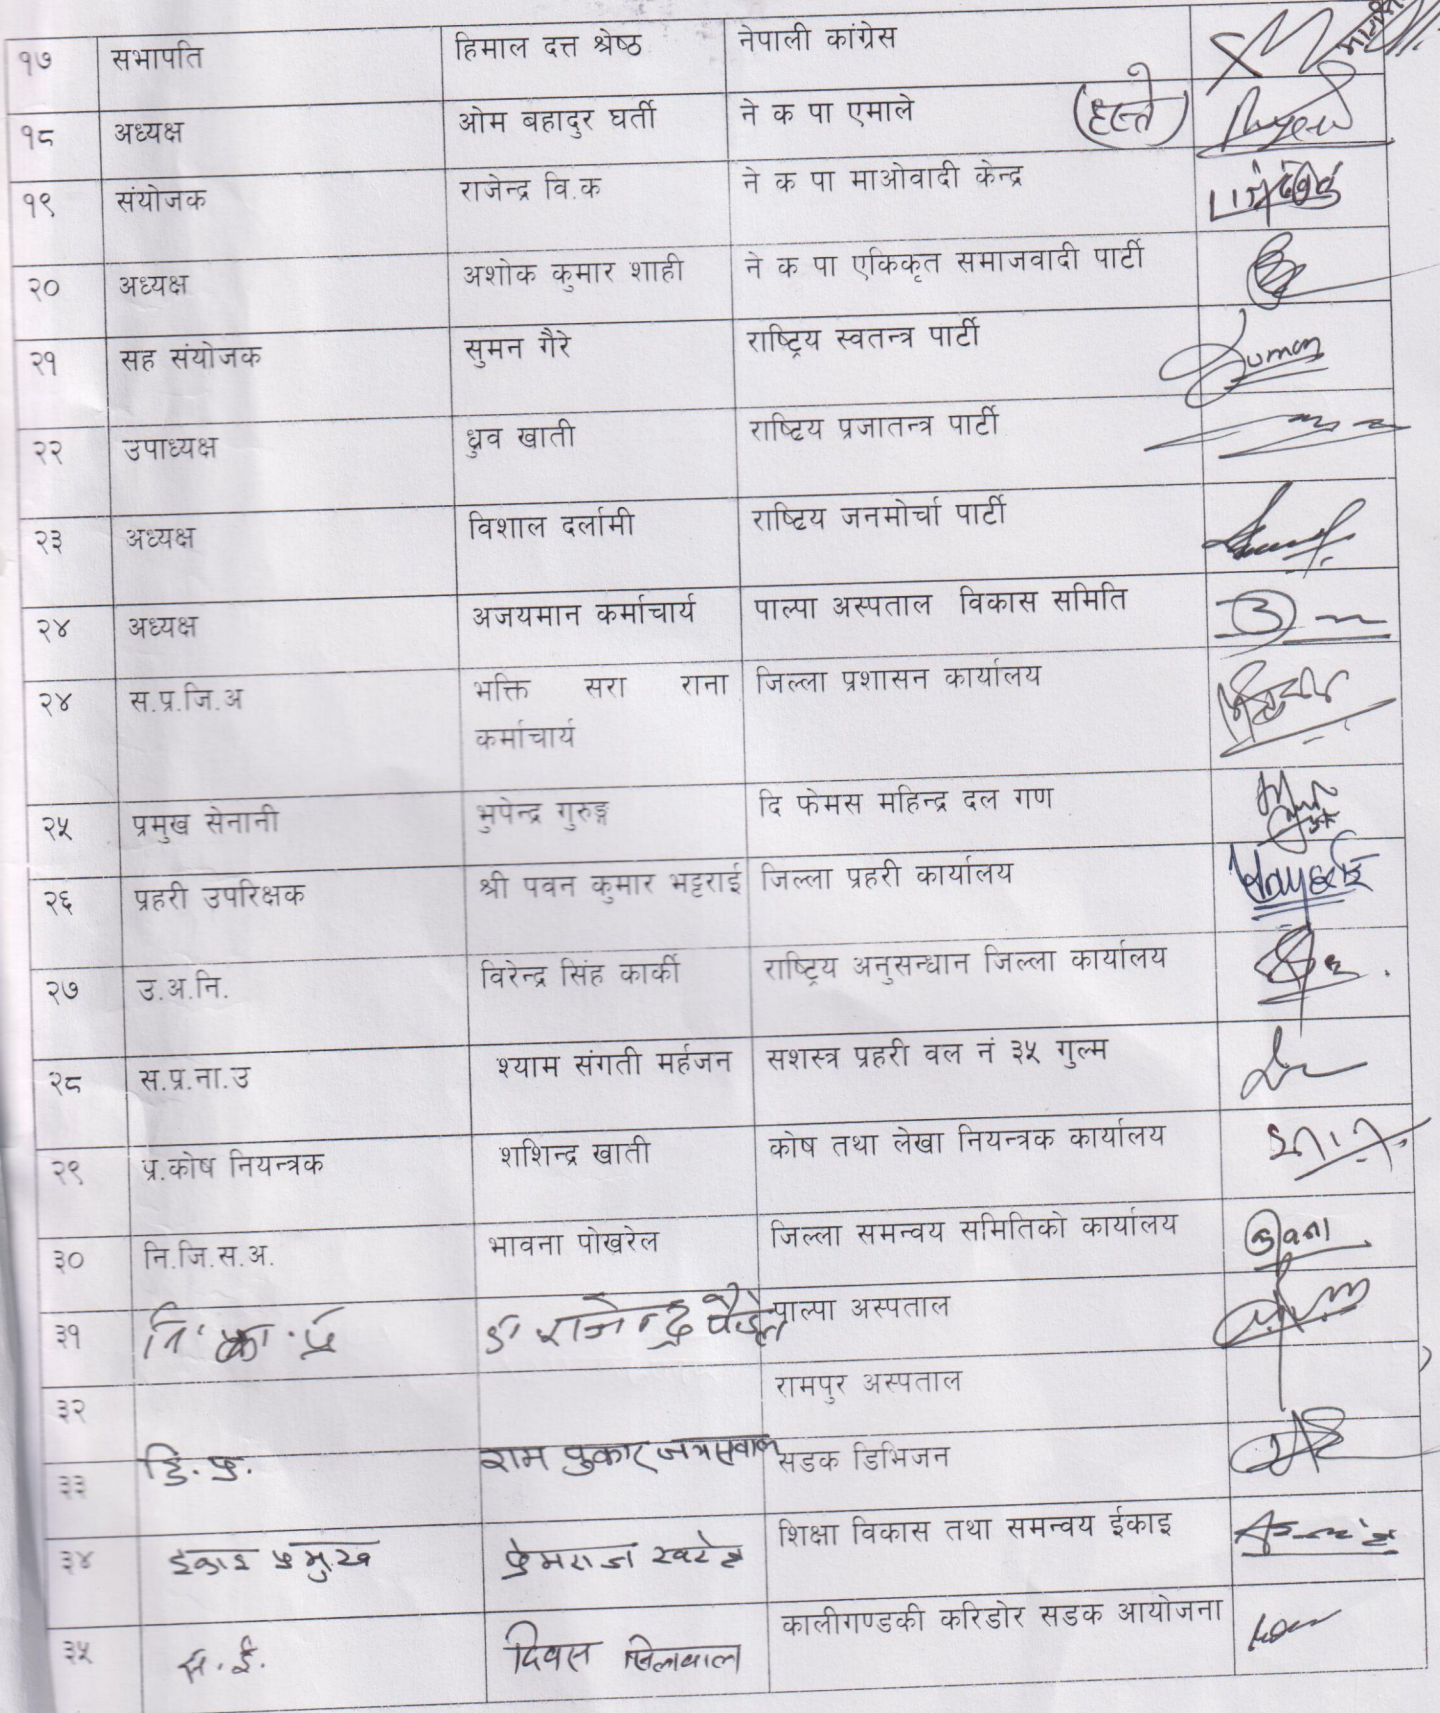 १७ सभापति हिमाल दत्त श्रेष्ठ नेपाली कांग्रेस
१८ अध्यक्ष ओम बहादुर घर्ती ने क पा एमाले (हस्ते)
१९ संयोजक राजेन्द्र वि.क ने क पा माओवादी केन्द्र
२० अध्यक्ष अशोक कुमार शाही ने क पा एकिकृत समाजवादी पार्टी
२१ सह संयोजक सुमन गैरे राष्ट्रिय स्वतन्त्र पार्टी Suman
२२ उपाध्यक्ष ध्रुव खाती राष्टिय प्रजातन्त्र पार्टी
२३ अध्यक्ष विशाल दर्लामी राष्टिय जनमोर्चा पार्टी
२४ अध्यक्ष अजयमान कर्माचार्य पाल्पा अस्पताल विकास समिति
२४ स.प्र.जि.अ भक्ति सरा राना जिल्ला प्रशासन कार्यालय
कर्माचार्य
२५ प्रमुख सेनानी भुपेन्द्र गुरुङ्ग दि फेमस महिन्द्र दल गण
२६ प्रहरी उपरिक्षक श्री पवन कुमार भट्टराई जिल्ला प्रहरी कार्यालय
२७ उ.अ.नि. विरेन्द्र सिंह कार्की राष्ट्रिय अनुसन्धान जिल्ला कार्यालय
२८ स.प्र.ना.उ श्याम संगती मर्हजन सशस्त्र प्रहरी वल नं ३५ गुल्म
२९ प्र.कोष नियन्त्रक शशिन्द्र खाती कोष तथा लेखा नियन्त्रक कार्यालय
३० नि.जि.स.अ. भावना पोखरेल जिल्ला समन्वय समितिको कार्यालय
३१ नि. का. प्र डा राजेन्द्र पौडेल पाल्पा अस्पताल
३२ रामपुर अस्पताल
३३ डि. प्र. राम पुकार जयसवाल सडक डिभिजन
३४ इकाइ प्रमुख प्रेमराज खरेल शिक्षा विकास तथा समन्वय ईकाइ
३५ सि. ई. दिवस सिलवाल कालीगण्डकी करिडोर सडक आयोजना